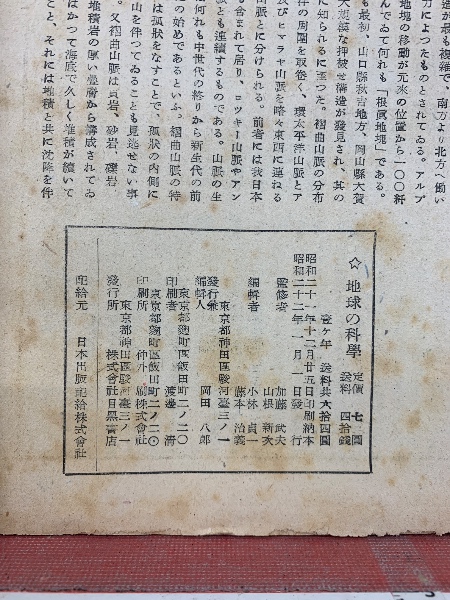 造が最も複雜で、南方より北方へ働い
力によつたものとされてゐる。アルプ
地塊の移動が元來の位置から一〇〇粁
んでゐて何れも「根無地塊」である。
も最初、山口縣秋吉地方、岡山縣大賀
大規模な押被せ構造が發見され、其の
に知られるに至つた。褶曲山脈の分布
洋の周圍を取卷く、環太平洋山脈とア
及びヒマラヤ山脈を略々東西に連ねる
山脈とに分けられる。前者には我日本
も含まれて居り、ロッキー山脈やアン
脈とも連續するものである。山脈の生
何れも中世代の終りから新生代の前
の始めであるといふ。褶曲山脈の特
は孤狀をなすことで、孤狀の內側に
山を伴つてゐることも見逃せない事
。又褶曲山脈は頁岩、砂岩、礫岩、
堆積岩の厚い疊層から構成されてゐ
はかつて海底で久しく堆積が續いて
こと、それには堆積と共に沈降を伴
☆ 地球の科學 定價 七圓 送料 四拾錢
壹ケ年 送料共六拾四圓
昭和二十一年十二月廿五日印刷納本
昭和二十二年一月一日發行
監修者 加藤武夫
山根新次
編輯者 小林貞一
藤本治義
東京都神田區駿河臺三ノ一
發行兼編輯人 岡田八郎
東京都麴町區飯田町二ノ二〇
印刷者 渡邊淸
東京都麴町區飯田町二ノ二〇
印刷所 株式會社
東京都神田區駿河臺三ノ一
發行所 株式會社目黑書店
配給元 日本出版配給株式會社